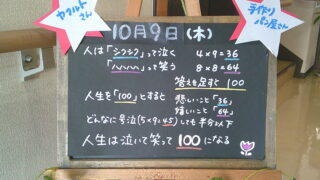 ヤクルトさん
手作りパン屋さん
10月9日(木)
人は「シクシク」って泣く 4×9=36
「ハハハハ」って笑う 8×8=64
答えを足すと 100
人生を「100」とすると 悲しいこと「36」
嬉しいこと「64」
どんなに号泣(5×9=45)しても半分以下
人生は泣いて笑って100になる